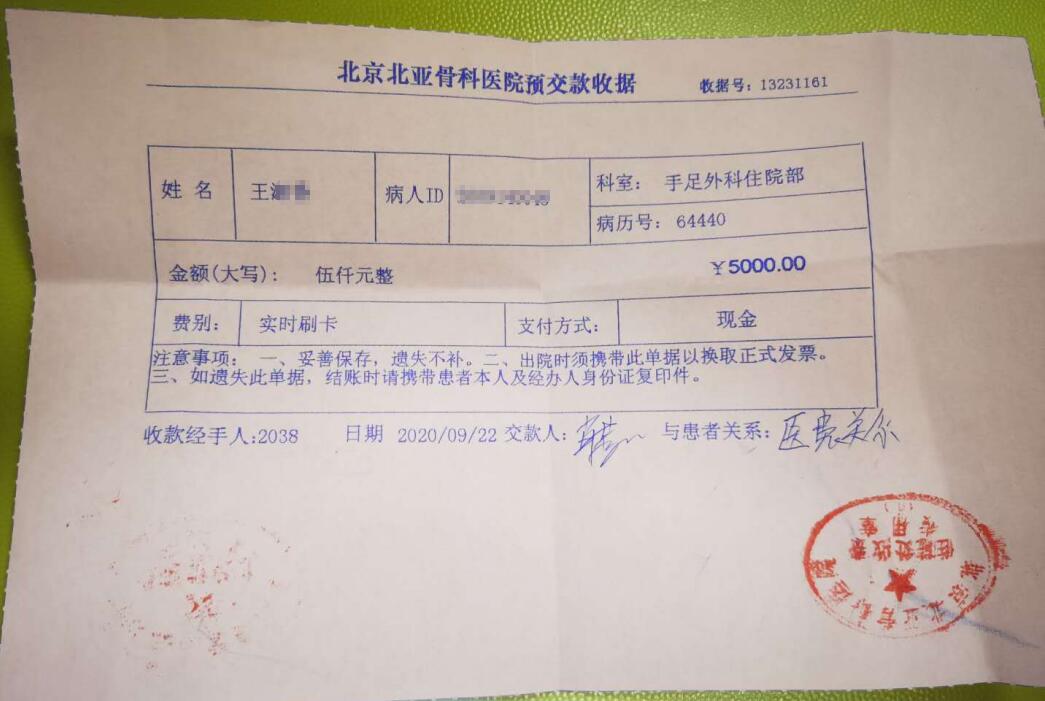 北京北亚骨科医院预交款收据 收据号：13231161
姓 名 王 病人ID 科室： 手足外科住院部
病历号： 64440
金额(大写)： 伍仟元整 ￥5000.00
费别： 实时刷卡 支付方式： 现金
注意事项： 一、妥善保存，遗失不补。二、出院时须携带此单据以换取正式发票。
三、如遗失此单据，结账时请携带患者本人及经办人身份证复印件。
收款经手人:2038 日期 2020/09/22 交款人： 与患者关系： 医患关系
北京北亚骨科医院
住院处收费
专用章